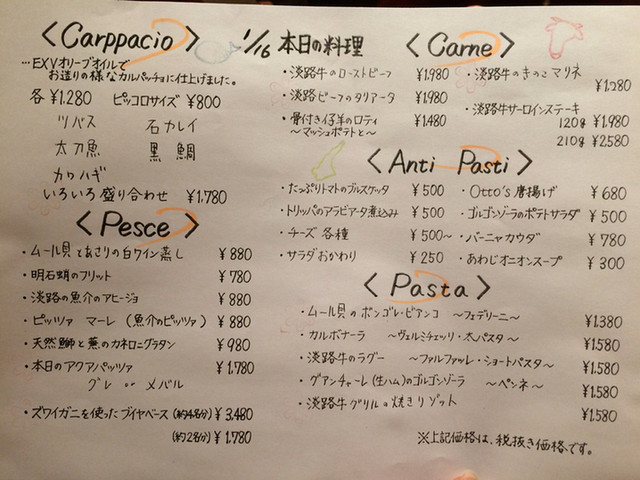 <Carppacio>
…EXVオリーブオイルで
お造りの様なカルパッチョに仕上げました。
各 ¥1,280 ピッコロサイズ ¥800
ツバス 石カレイ
太刀魚 黒鯛
カワハギ
いろいろ盛り合わせ ¥1,780
<Pesce>
・ムール貝とあさりの白ワイン蒸し ¥880
・明石蛸のフリット ¥780
・淡路の魚介のアヒージョ ¥880
・ピッツァ マーレ (魚介のピッツァ) ¥880
・天然鰤と蕪のカネロニグラタン ¥980
・本日のアクアパッツァ ¥1,780
グレ or メバル
・ズワイガニを使ったブイヤベース (約4名分) ¥3,480
(約2名分) ¥1,780
1/16 本日の料理
<Carne>
・淡路牛のローストビーフ ¥1,980
・淡路ビーフのタリアータ ¥1,980
・骨付き仔羊のロティ ¥1,480
〜マッシュポテトと〜
・淡路牛のきのこマリネ
¥1,280
・淡路牛サーロインステーキ
120g ¥1,980
210g ¥2,580
<Anti Pasti>
・たっぷりトマトのブルスケッタ ¥500
・トリッパのアラビアータ煮込み ¥500
・チーズ各種 ¥500〜
・サラダおかわり ¥250
・Otto's唐揚げ ¥680
・ゴルゴンゾーラのポテトサラダ ¥500
・バーニャカウダ ¥780
・あわじオニオンスープ ¥300
<Pasta>
・ムール貝のボンゴレ・ビアンコ 〜フェデリーニ〜 ¥1,380
・カルボナーラ 〜ヴェルミチェッリ・太パスタ〜 ¥1,580
・淡路牛のラグー 〜ファルファッレ・ショートパスタ〜 ¥1,580
・グアンチャーレ(生ハム)のゴルゴンゾーラ 〜ペンネ〜 ¥1,580
・淡路牛グリルの焼きリゾット ¥1,580
※上記価格は、税抜き価格です。